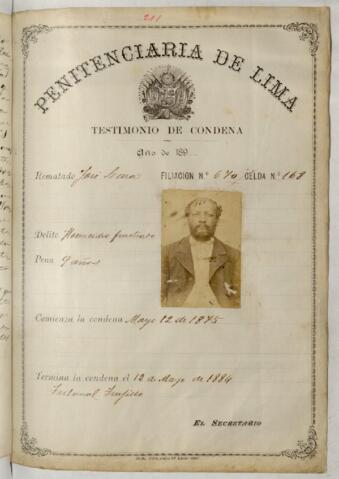 211
PENITENCIARIA DE LIMA
TESTIMONIO DE CONDENA
Año de 189
Rematado José FILIACIÓN N.º 670 CELDA N.º 163
Delito Homicidio frustrado
Pena 9 años
Comienza la condena Mayo 12 de 1875
Termina la condena el 12 de Mayo de 1884
Tribunal Trujillo
EL SECRETARIO